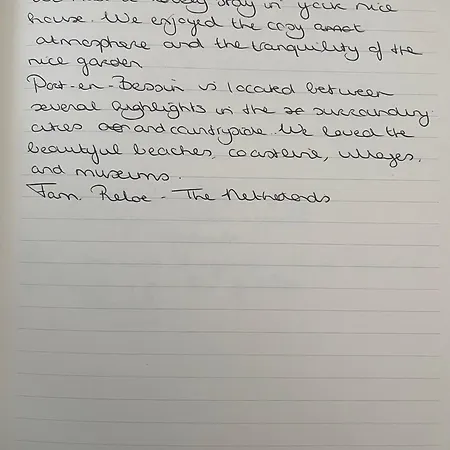 lovely stay in your nice
house. We enjoyed the cozy
atmosphere and the tranquility of the
nice garden
Port-en-Bessin is located between
several highlights in the surrounding
cities and countryside. We loved the
beautiful beaches, coastline, villages,
and museums.
Fam. Reloe - The Netherlands